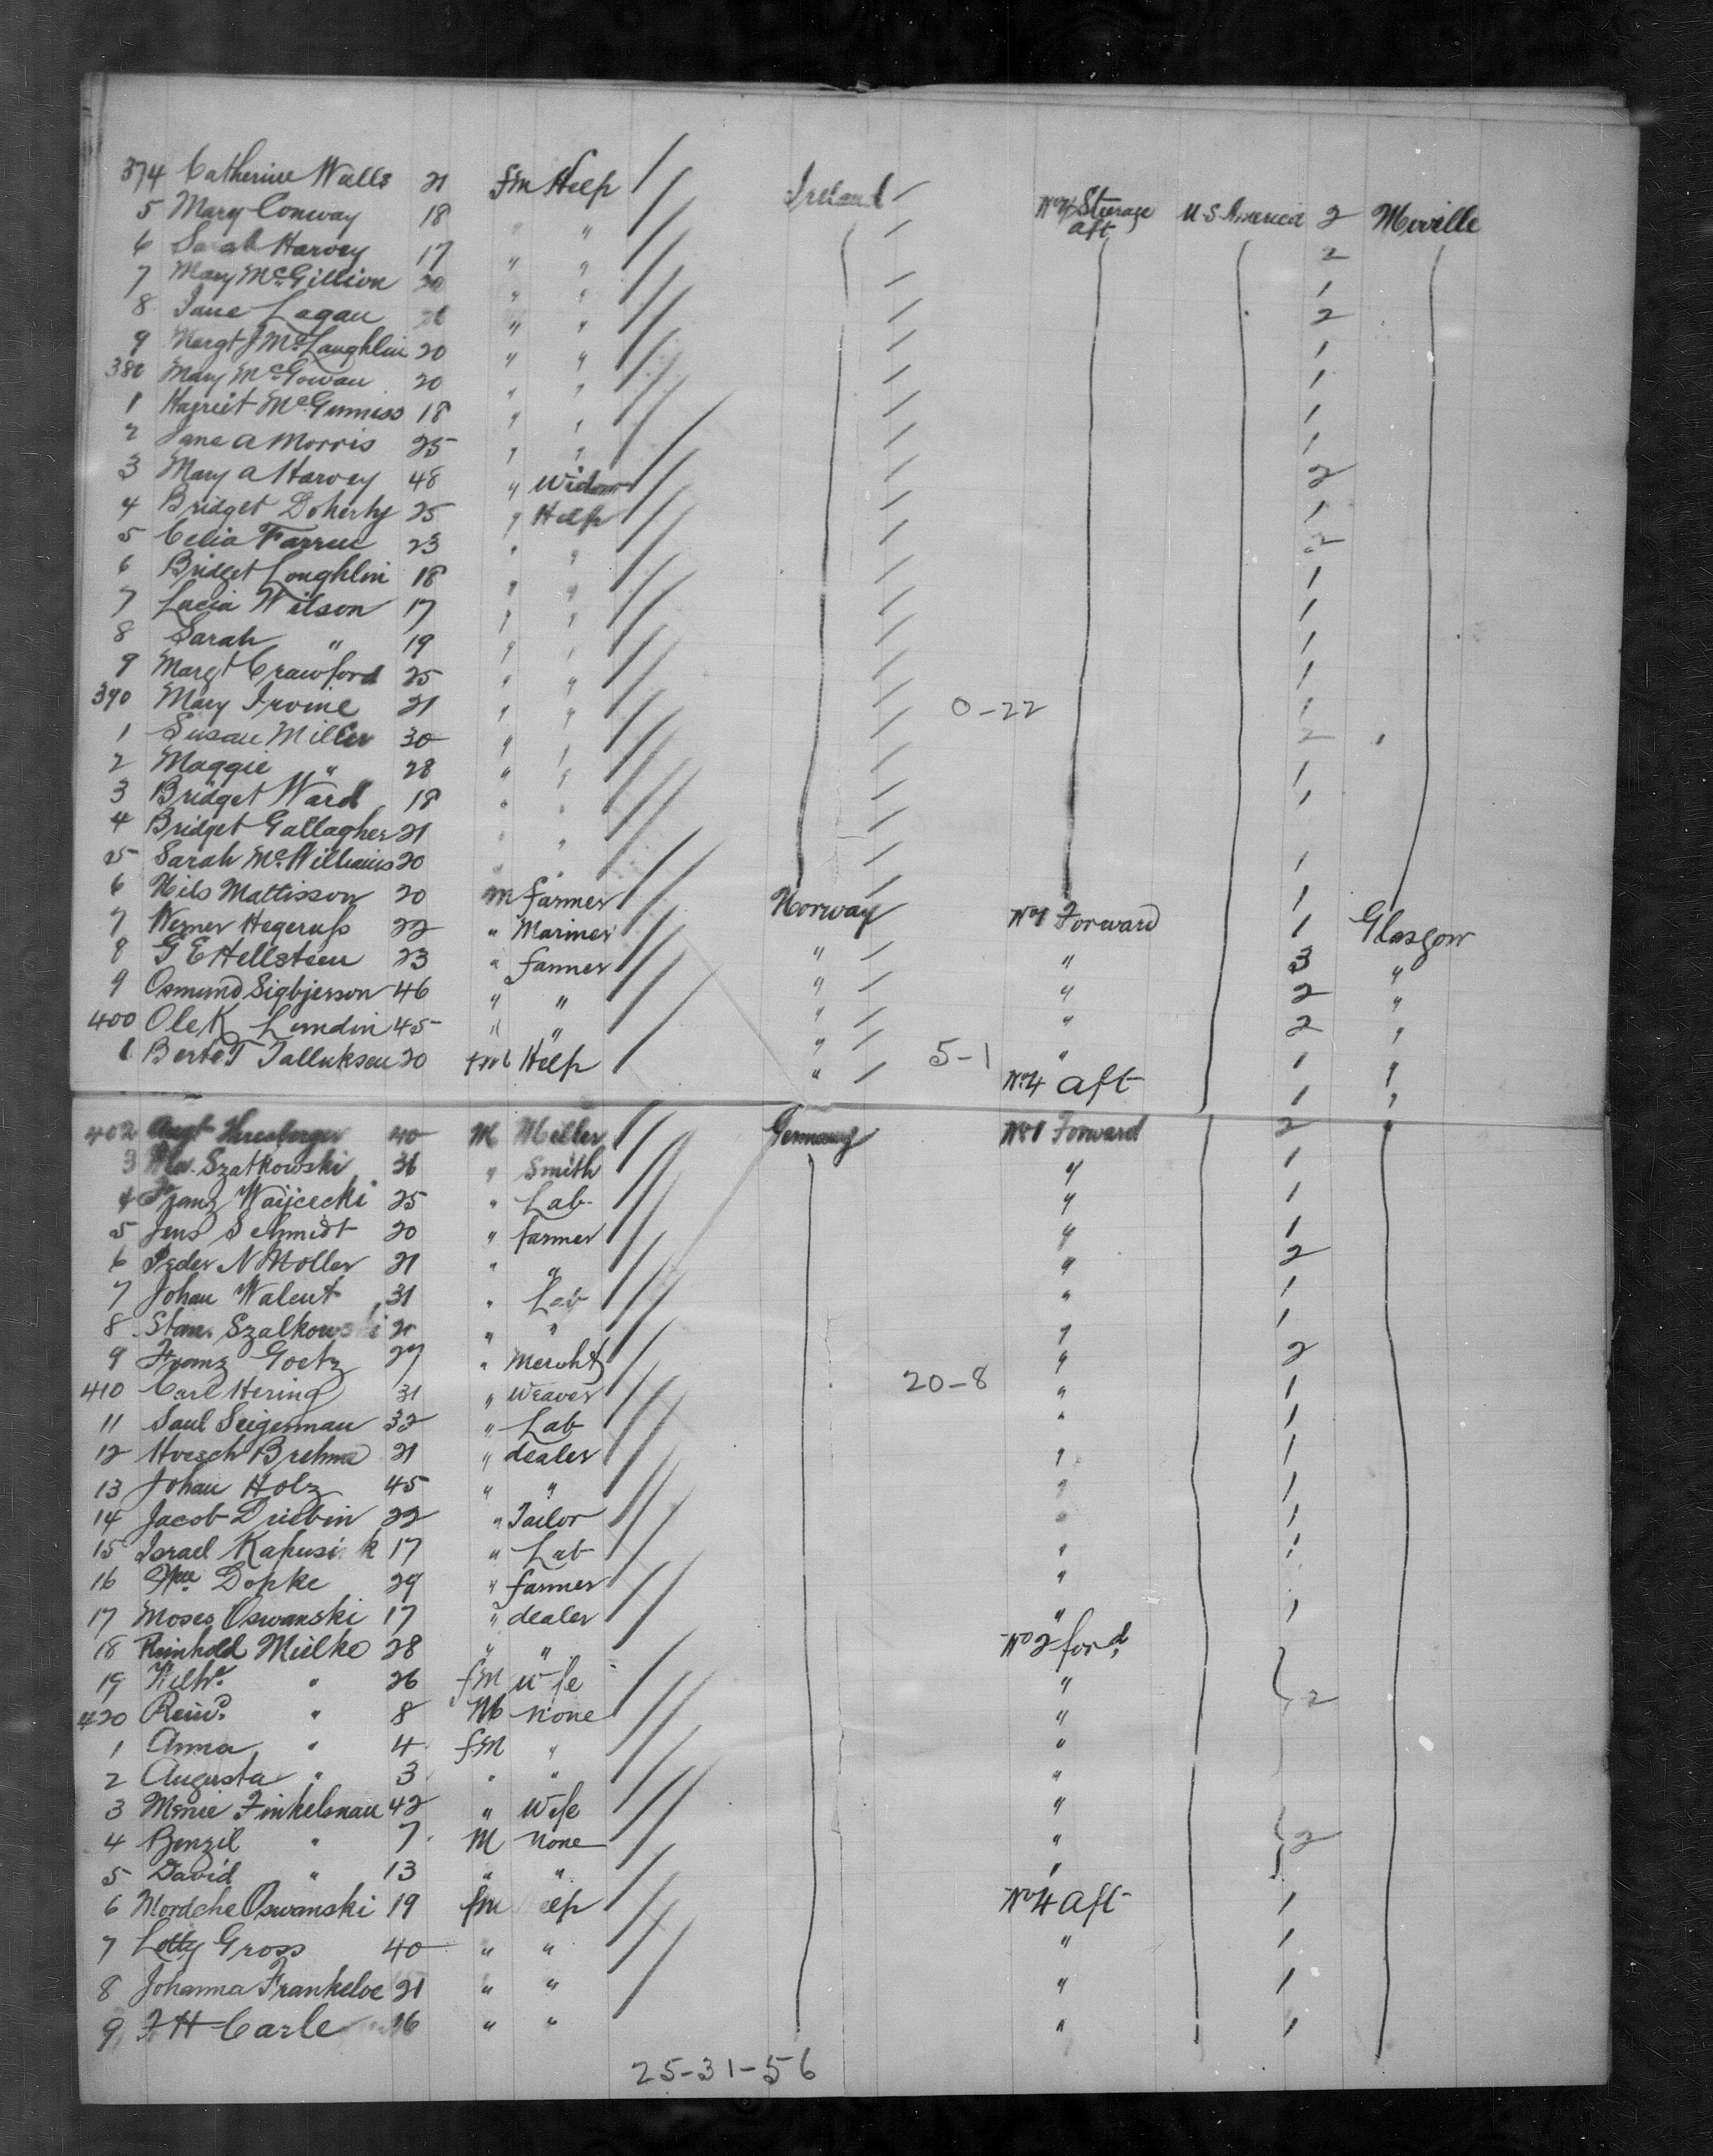 374 Catherine Walls 21 fm Help Ireland No 4 Steerage aft U.S. America 2 Moville
5 Mary Conway 18 " " 2
6 Sarah Harvey 17 " " 1
7 Mary McGillion " " 2
8 Jane Lagan " " 1
9 Margt J McLaughlin 20 " " 1
380 Mary McGowan 20 " " 1
1 Harriet McGinniss 18 " " 1
2 Jane A Morris 25 " " 2
3 Mary A Harvey 48 " Widow 1
4 Bridget Doherty 25 " Help 2
5 Celia Farren 23 " " 1
6 Bridget Loughlin 18 " " 1
7 Lucia Wilson 17 " " 1
8 Sarah " 19 " " 1
9 Margt Crawford 25 " " 1
390 Mary Irvine 21 " " 0-22 2
1 Susan Miller 30 " " 1
2 Maggie " 28 " " 1
3 Bridget Ward 18 " "
4 Bridget Gallagher 21 " " 1
5 Sarah McWilliams 20 " " 1
6 Nils Mattisson 20 m farmer Norway No 1 Forward 1 Glasgow
7 Werner Hegerup 22 " Mariner " " 3 "
8 G E Hellstsen 23 " farmer " " 2 "
9 Osmund Sigbjerson 46 " " " " 2 "
400 Ole K Lundin 45 " " " " 1 "
1 Berte T Talluksen 20 fm Help " 5-1 No 4 aft 1 "
402 Augt 40 M Miller Germany No 1 Forward 2 "
3 Szatkowski 36 " Smith " 1
4 Franz Waijcecki 25 " Lab " 1
5 Jens Schmidt 20 " farmer " 1
6 Peder N Moller 21 " " " 2
7 Johan Walent 31 " Lab " 1
8 Stan. Szalkowski 21 " " " 1
9 Franz Goetz 27 " Mercht " 2
410 Carl Hering 31 " Weaver 20-8 " 1
11 Saul Seigerman 32 " Lab " 1
12 Hoesch Brehme 21 " dealer " 1
13 Johan Holz 45 " " " 1
14 Jacob Driebin 22 " Tailor " 1
15 Israel Kapusi k 17 " Lab " 1
16 Dopke 29 " farmer "
17 Moses Oswanski 17 " dealer " 1
18 Reinhold Mielke 28 " " No 2 ford
19 Wilhe " 26 fm wife "
420 Reind " 8 M none " 2
1 Anna " 4 fm " "
2 Augusta " 3 " " "
3 Menie Finkelsnau 42 " Wife "
4 Benzil " 7 M none " 2
5 David " 13 " " "
6 Mordche Oswanski 19 fm elp No 4 aft 1
7 Letty Gross 40 " " " 1
8 Johanna Frankeloe 21 " " " 1
9 F H Carle 16 " " " 1
25-31-56